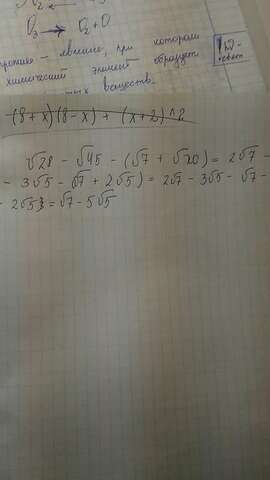 O₃ → O₂ + O
явление, при котором
химический элемент образует
веществ.
(8+x)(8-x) + (x+2)^2
√28 - √45 - (√7 + √20) = 2√7 -
- 3√5 - (√7 + 2√5) = 2√7 - 3√5 - √7 -
- 2√5 = √7 - 5√5